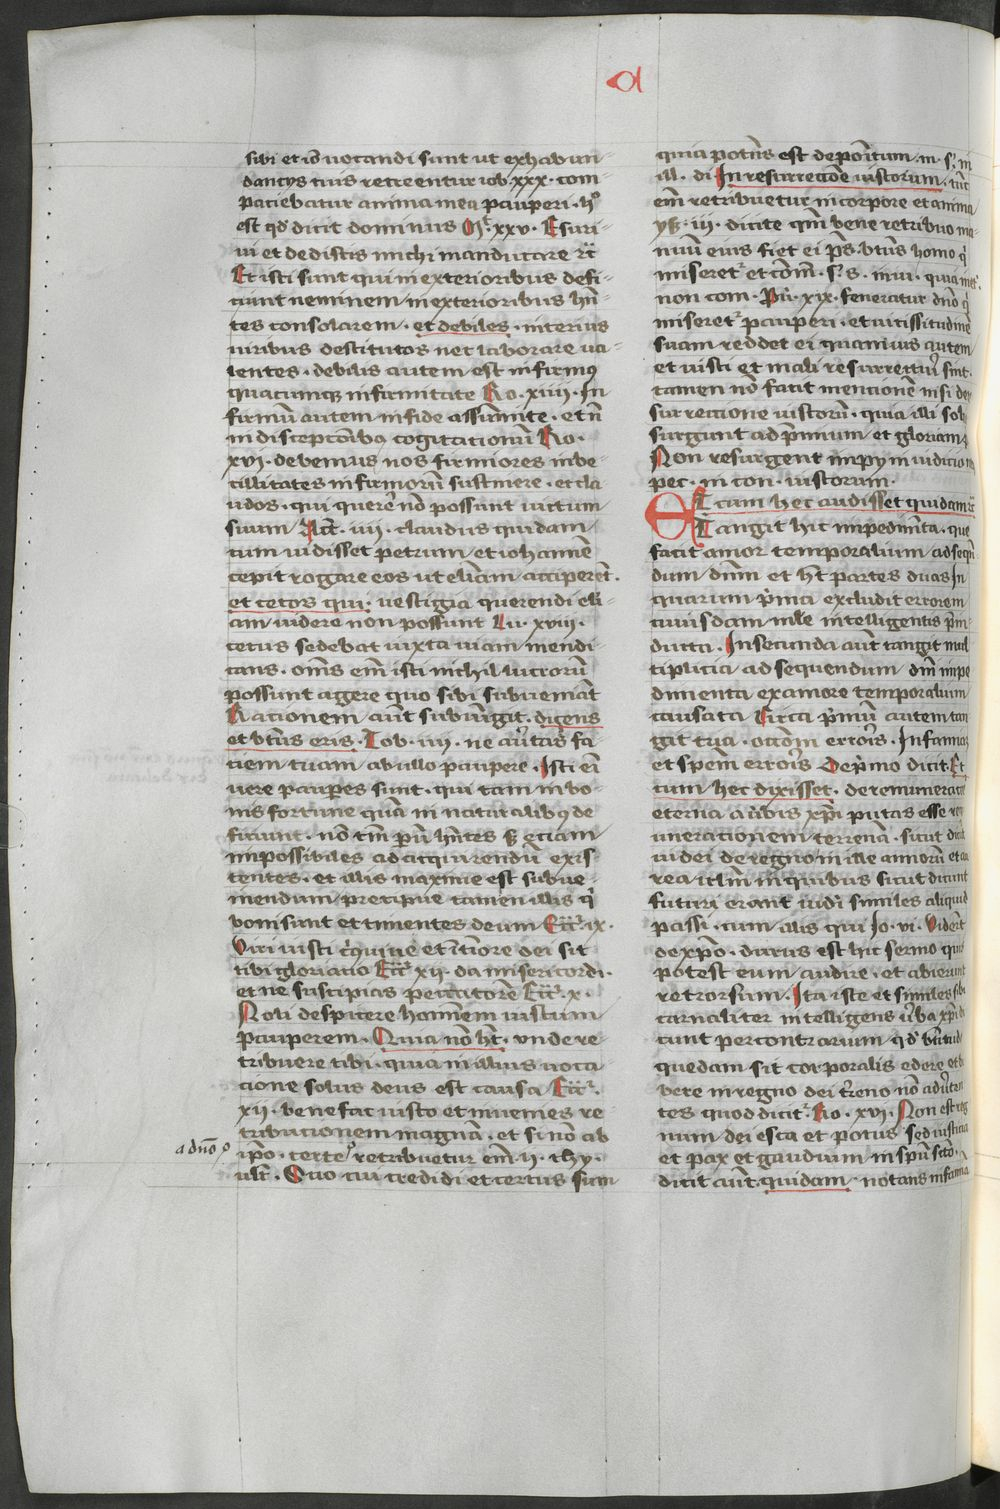 sibi et iō uocandi sunt ut exhabun-
dantijs tuis recreentur iob .xxx. com-
paciebatur anima mea pauperi . h°
est qd dicit dominus Mt. xxv. Esuri-
ui et dedistis michi manducare rc̄
Et isti sunt qui in exterioribus defi-
ciunt neminem in exterioribus hn̄-
tes consolarem . et debiles . interius
uiribus destitutos nec laborare ua-
lentes . debilis autem est infirmus
quacumqz infirmitate Ro. xiiii. In
firmum autem in fide assumite . et n̄
in disceptōibus cogitacionum Ro.
xvi. debemus nos firmiores inbe-
cillitates infirmorū sustinere . et cla
udos . qui querere nō possunt uictum
suum Act. iii . claudus quidam
cum uidisset petrum et iohannē
cepit rogare eos ut elīam acciperet .
et cecos qui . uestigia querendi eli-
am uidere non possunt Lu. xviii.
cecus sedebat iuxta uiam mendi-
cans . oms em isti nichil lucrorū
possunt agere quo sibi subueniāt
Racionem aūt subiungit . dicens
et btūs eris . Tob. iiii. ne auertas fa-
ciem tuam ab ullo paupere . Isti eī
uere pauperes sunt . qui tam in bo-
nis fortune quā in naturalibus de
ficiunt . nō tm̄ pū hn̄tes sz eciam
impossibiles ad acquirendū exis-
tentes . et illis maxime est subue-
niendum precipue tamen illis q̇
boni sunt et timentes deum Ecc̄. ix.
Viri iusti cōuiue et in timore dei sit
tibi gloriatio Ecc̄. xii. da misericordi .
et ne suscipias peccatorē Ecc̄. x.
Noli despicere hominem iustum
pauperem . Quia nō hn̄t . unde re-
tribuere tibi . quia in illius uoca
cione solus deus est causa Ecc̄.
xii. benefac iusto et inuenies re-
tribucionem magnā . et si nō ab
ipō . certe retribuetur em̄ ii. thy.
ult̄. Scio cui credidi et certus sum
a dn̄o
quia potens est depositum .m. s. in
ill. di In resurrectōe iustorum . tūc
em̄ retribuetur in corpore et anima
ys. iii. dicite qm̄ bene retribuo ma-
nuū eius fiet ei ps. btūs homo q̇
miseret et com̄.
non com. Pū. xix. feneratur dn̄o q̇
miseret pauperi . et uicissitudinē
suam reddet ei quamuis autem
et iusti et mali resurrecturi sint .
tamen nō facit mencionē nisi de
surrectione iustorū . quia illi soli
surgunt ad premium et gloriam
Non resurgent impij in iudicio
pec. in con. iustorum .
Et cum hec audisset quidam rc̄
Tangit hic impedimēta . que
facit amor temporalium ad sequē
dum dn̄m et hēt partes duas In
quarum prima excludit errorem
cuiusdam male intelligentis pre-
dicta . In secunda aūt tangit mul
tiplicia ad sequendum dn̄m impe
dimenta ex amore temporalium
causata Circa primū autem tan
git tria . occōm erroris . Infamiaz
et spem erroris De primo dicit Et
cum hec dixisset . de remuneratōe
eterna
uneracionem terrenā . sicut dicūt
iudei de regno mille annorū et
rea ierlm̄ in quibus sicut dicunt
futuri erant iudei similes aliquid
passi . cum illis qui Jo. vi. Viderēt
de xp̄o . durus est hic sermo quis
potest eum audire . et abierunt
retrorsum . Ita iste et similes sibi
carnaliter intelligens uerba xp̄i
cunt per contrarium qd btitud
quedam sit corporalis edere et bi
bere in regno dei t̄reno nō aduerten
tes quod dicit Ro. xvi. Non est reg
num dei esca et potus sed iusticia
et pax et gaudium in spū scō .
dicit aūt quidam . notans infamiā